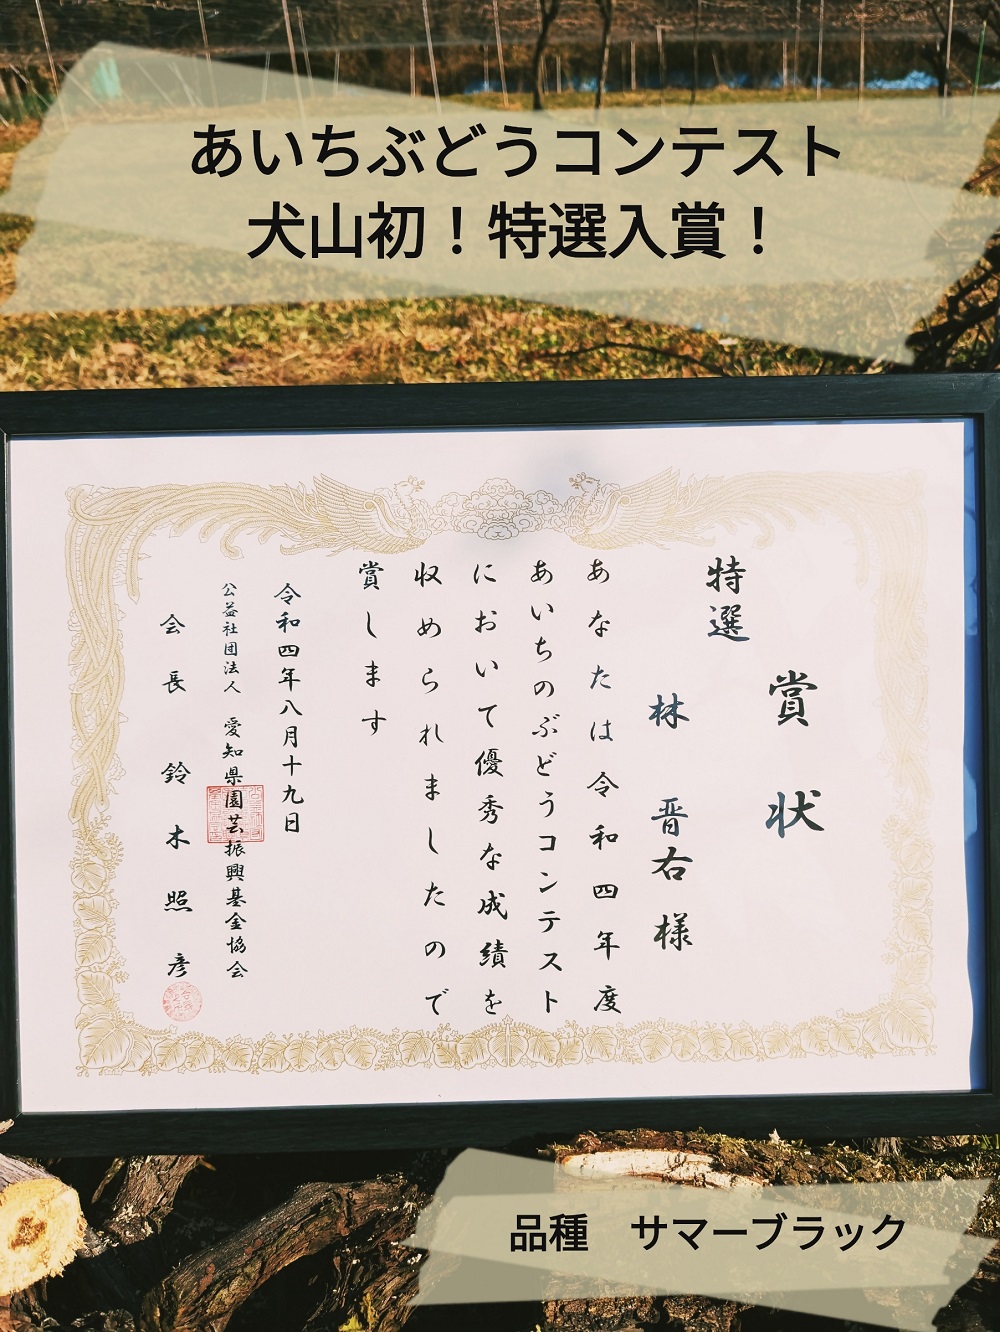 あいちぶどうコンテスト
犬山初！特選入賞！
賞状
特選
林 晋右 様
あなたは令和四年度
あいちのぶどうコンテスト
において優秀な成績を
収められましたので
賞します
令和四年八月十九日
公益社団法人 愛知県園芸振興基金協会
会長 鈴木照彦
品種 サマーブラック